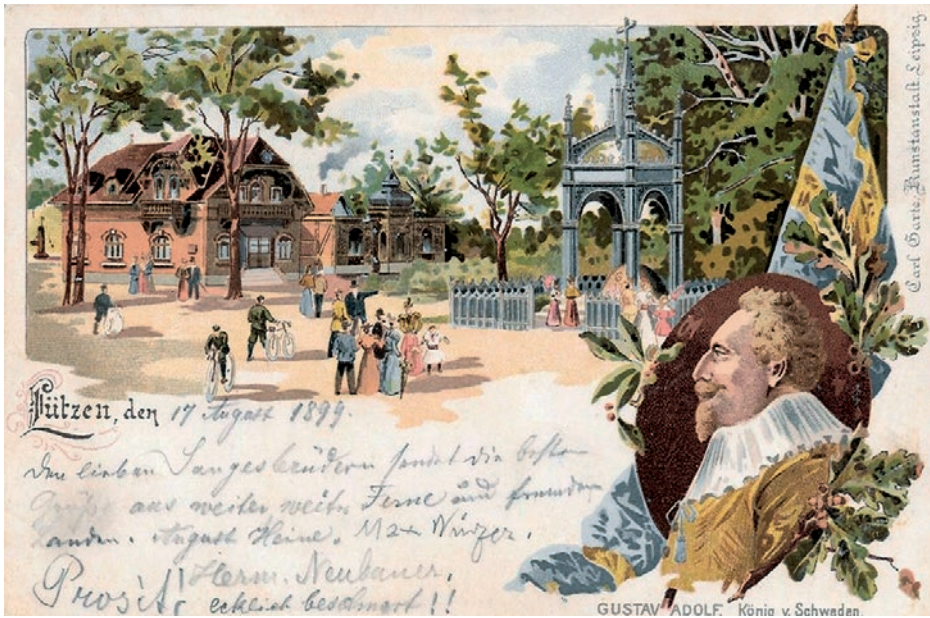 Carl Garte, Kunstanstalt, Leipzig.
Lützen, den 17 August 1899.
Den lieben Sangesbrüdern sendet die besten
Grüße aus weiter weiter Ferne und fremden
Landen. August Heine. Max Würzer.
Prosit! Herm. Neubauer,
beschmort!!
GUSTAV ADOLF. König v. Schweden.